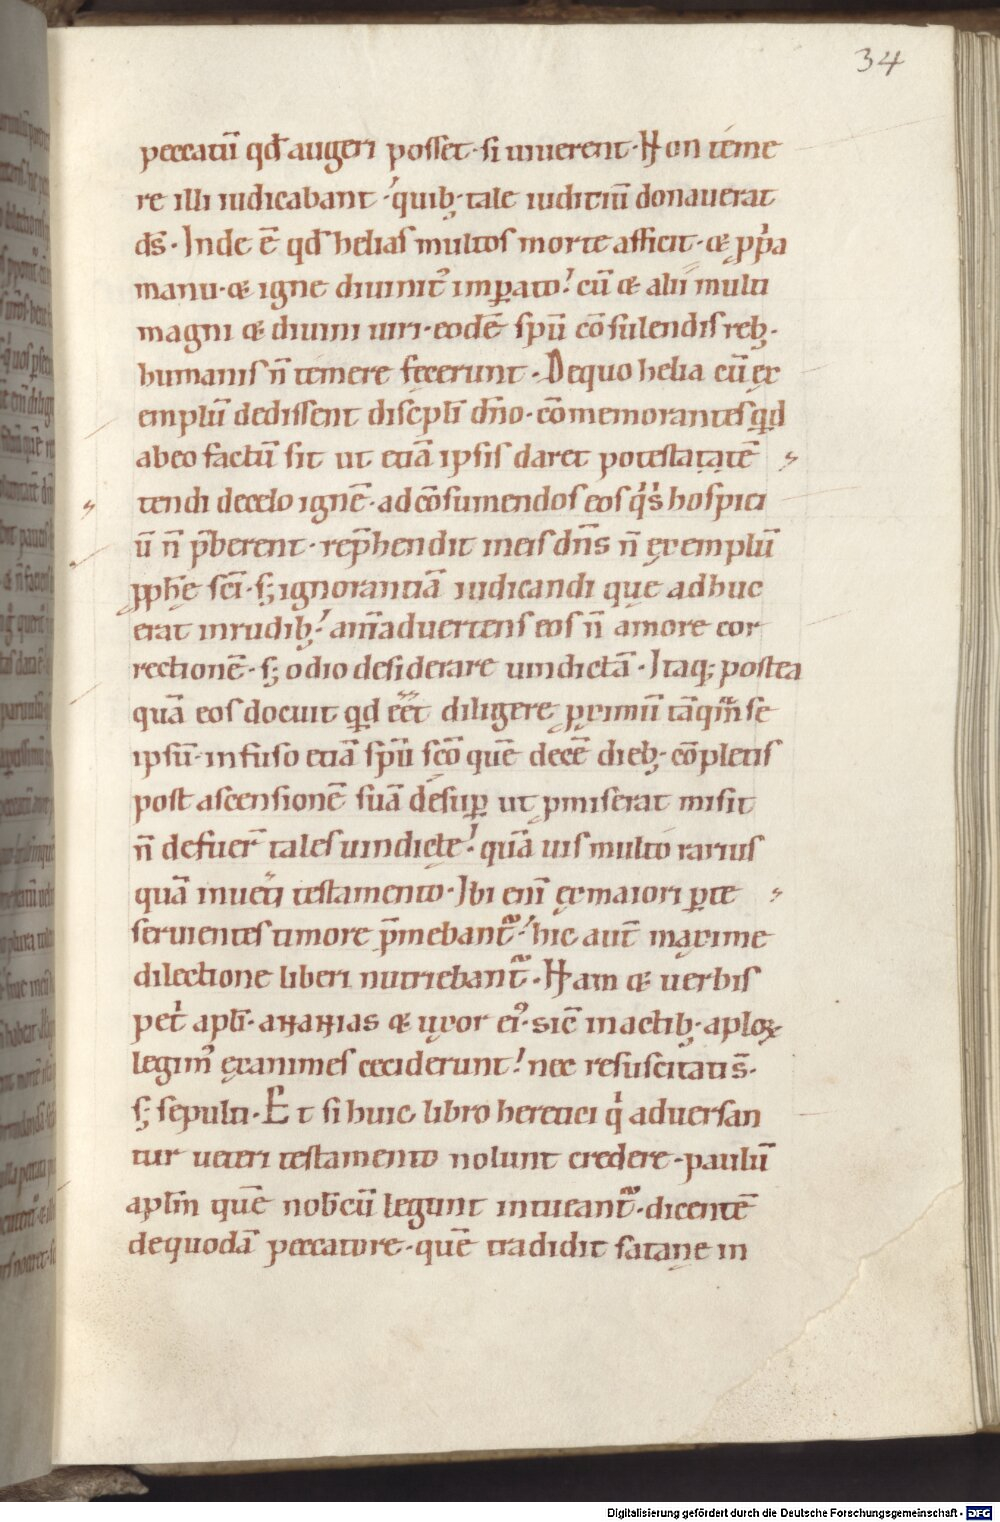 34
peccatū qđ augeri posset· si uiuerent· Non teme
re illi iudicabant· quib; tale iuditiū donauerat
ds̄· Inde ē qđ helias multos morte affecit· & ppͥa
manu· & igne diuinit᷒ imꝑato· cū & alii multi
magni & diuini uiri· eodē spū cōsulendis reb;·
humanis n̄ temere fecerunt· De quo helia cū ex
emplū dedissent discipli dn̄o· cōmemorantes qđ
ab eo factū sit ut etiā ipsis daret potestatatē
tendi de celo ignē· ad cōsumendos eos qͥ sͥ hospici
ū n̄ p̄berent· rep̄hendit in eis dn̄s n̄ exemplū
ꝓph̄ę sc̄i· s; ignorantiā iudicandi quę adhuc
erat in rudib; am̄aduertens eos n̄ amore cor
rectionē· s; odio desiderare uindictā· Itaq; postea
quā eos docuit qđ eēt diligere ꝓximū tāqm̄ se
ipsū· infuso etiā spū scō quē decē dieb; cōpletis
post ascensionē suā desuꝑ ut ꝓmiserat misit
n̄ defuer̄ tales uindictę· quā uis multo rarius
quā in uet̄i testamento· Ibi enī ex maiori ꝑte
seruientes timore p̄mebant᷑· hic aut̄ maxime
dilectione liberi nutriebant᷑· Nam & uerbis
petͥ apłi· ananias & uxor ei᷒· sic̄ in actib; aploꝝ
legim᷒ exanimes ceciderunt· nec resuscitati s̄·
s; sepulti· Et si huic libro heretici qͥ aduersan
tur ueteri testamento nolunt credere· paulū
aplm̄ quē nob̄cū legunt intueant᷑· dicentē
de quodā peccatore· quē tradidit satanę in
Digitalisierung gefördert durch die Deutsche Forschungsgemeinschaft - DFG